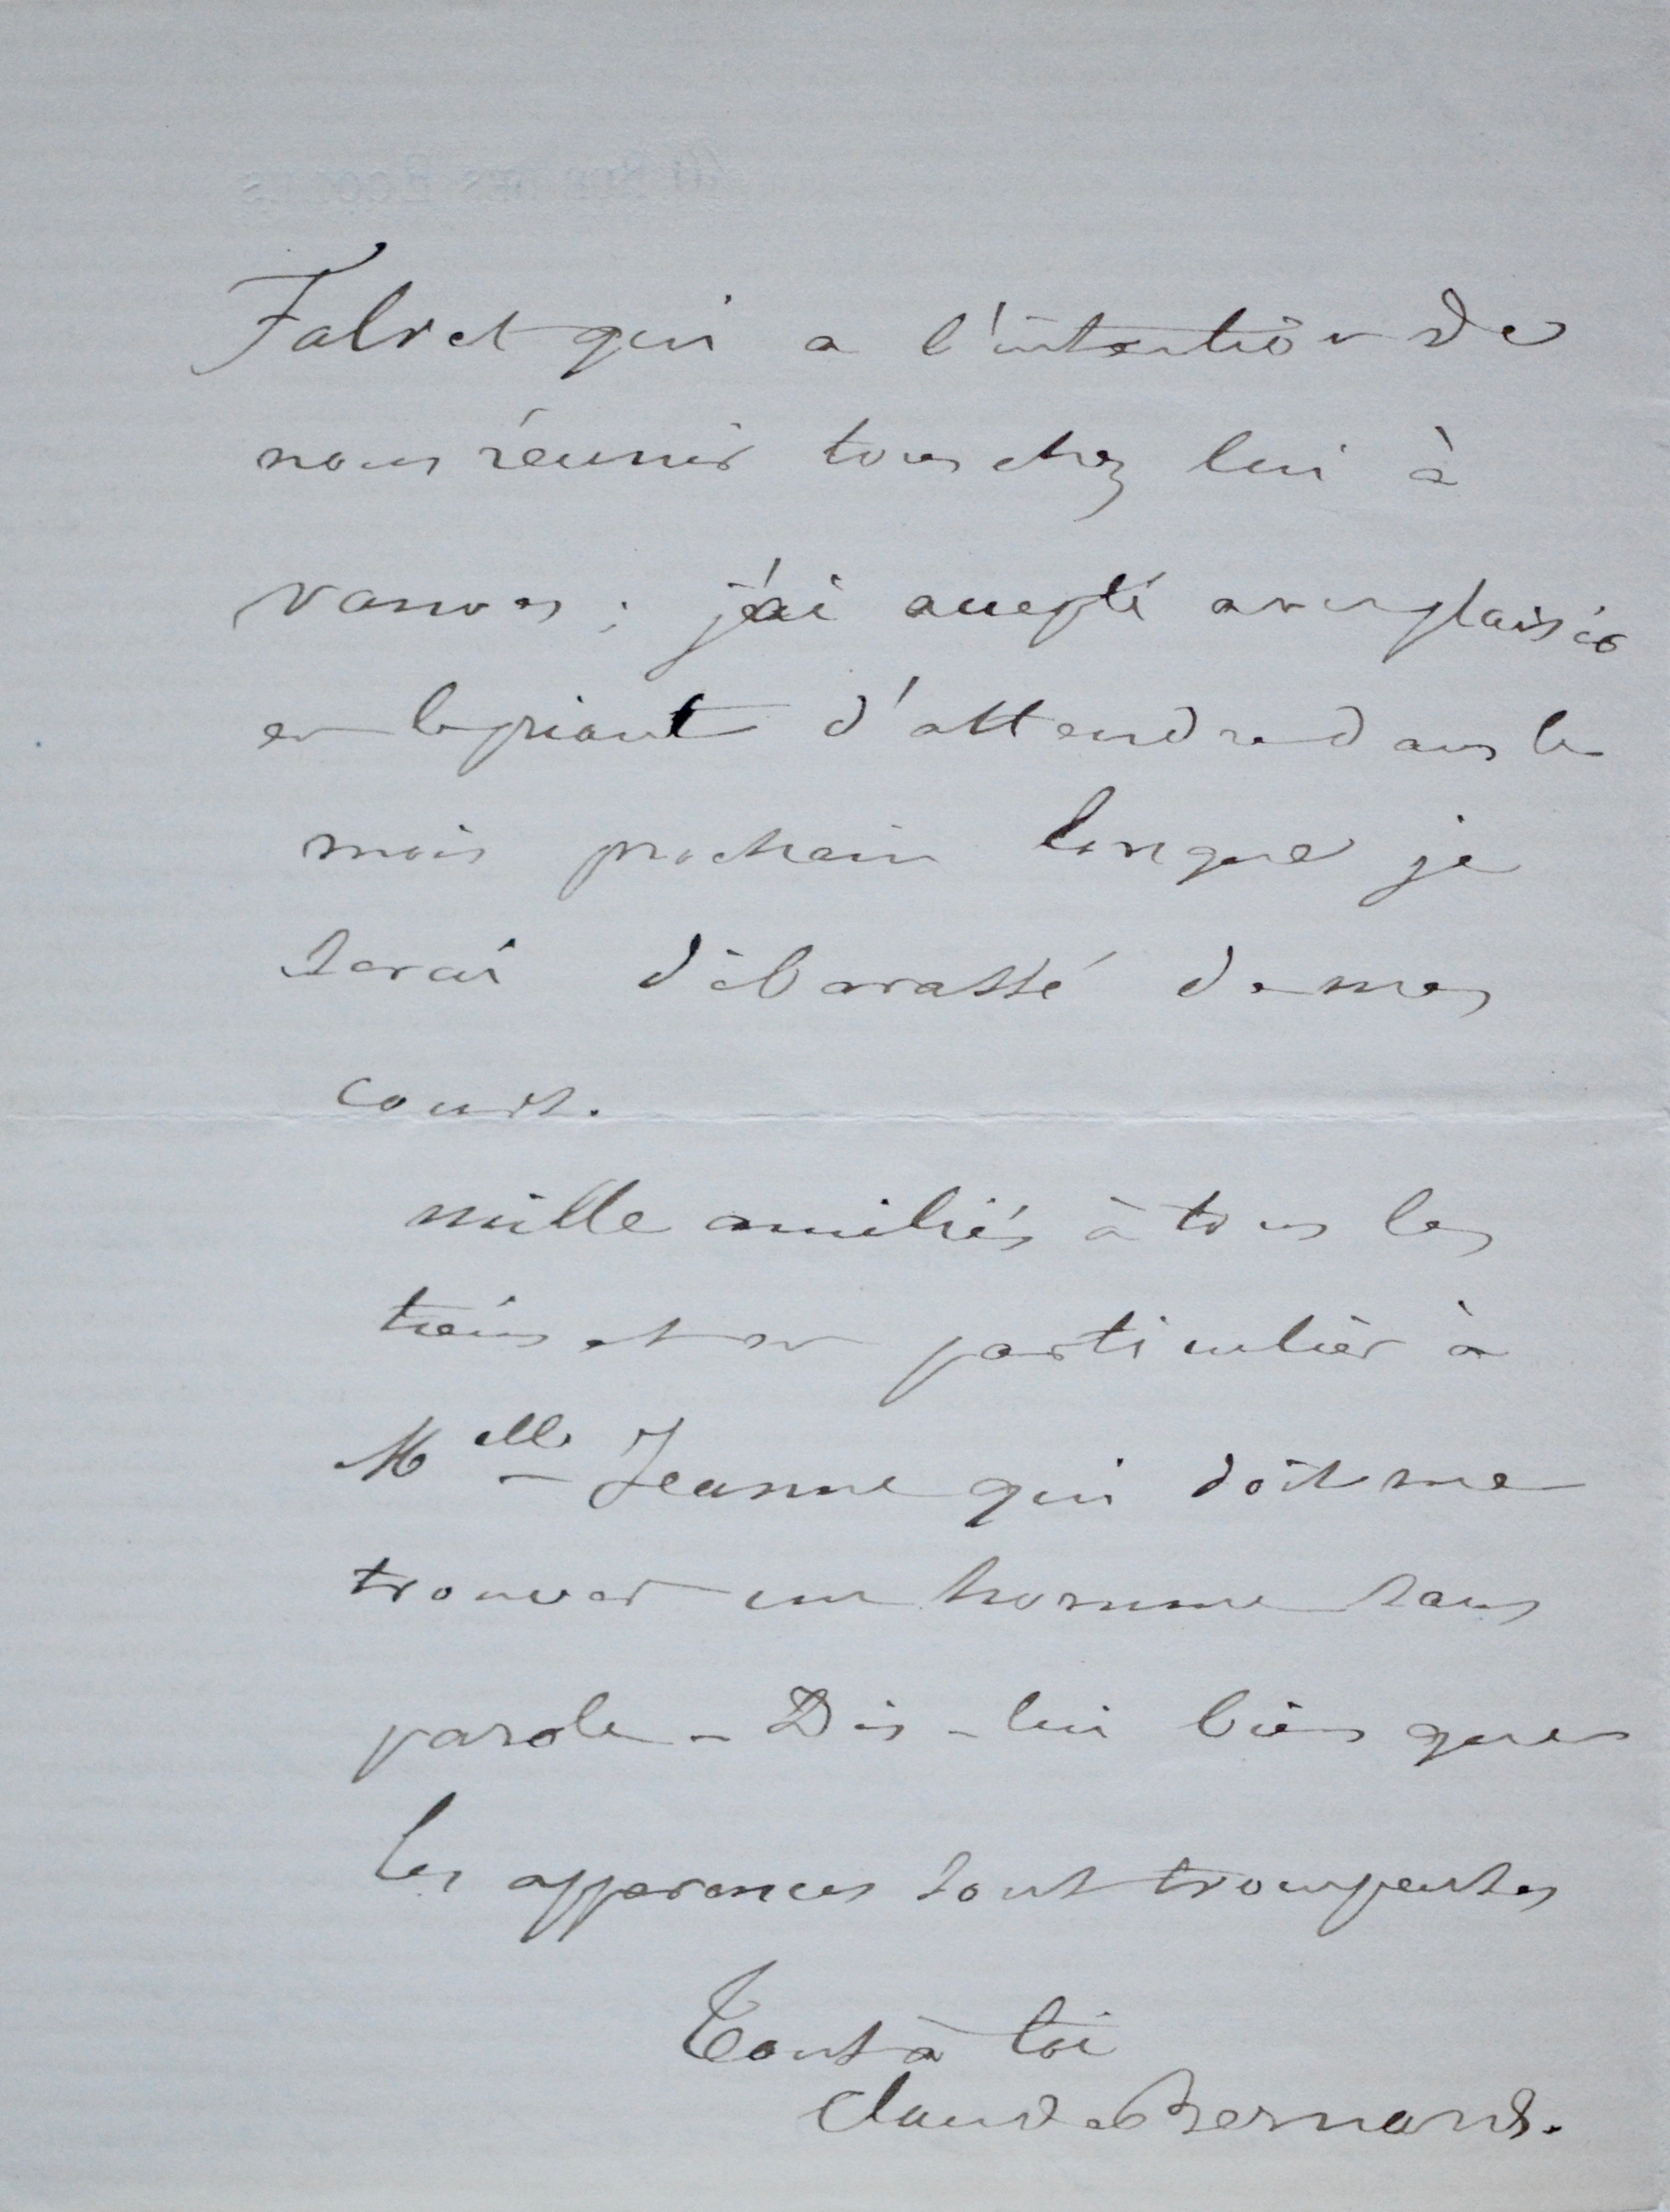 40 Rue des Écoles
Falret qui a l'intention de
nous réunir tous chez lui à
vanves ; j'ai accepté avec plaisir
en le priant d'attendre dans le
mois prochain lorsque je
serai débarassé de mes
cours.
mille amitiés à tous les
trois et en particulier à
Melle Jeanne qui doit me
trouver un homme sans
parole - Dis-lui bien que
les apparences sont trompeuses
Tout à toi
Claude Bernard.